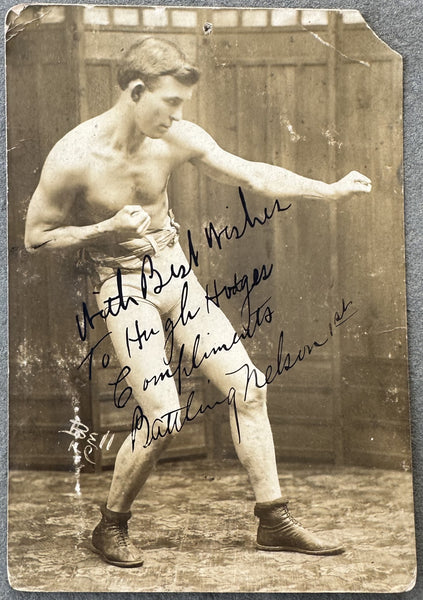 With Best Wishes
To Hugh Hodges
Compliments
Battling Nelson 1st